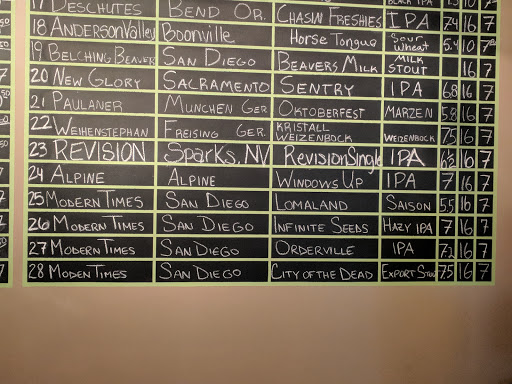 17 DESCHUTES BEND OR. CHASIN FRESHIES IPA 7.4 16 7
18 ANDERSON Valley Boonville Horse Tongue Sour Wheat 5.4 10
19 BELCHING BEAVER SAN DIEGO BEAVERS MILK MILK STOUT 16 7
20 NEW GLORY SACRAMENTO SENTRY IPA 6.8 16 7
21 PAULANER MUNCHEN GER OKTOBERFEST MARZEN 5.8 16 7
22 WEIHENSTEPHAN FREISING GER. KRISTALL WEIZENBOCK WEIZENBOCK 7.5 16 7
23 REVISION Sparks, NV Revision Single IPA 16 7
24 ALPINE ALPINE WINDOWS UP IPA 7 16 7
25 MODERN TIMES SAN DIEGO LOMALAND SAISON 5.5 16 7
26 MODERN TIMES SAN DIEGO INFINITE SEEDS HAZY IPA 7 16 7
27 MODERN TIMES SAN DIEGO ORDERVILLE IPA 7.2 16 7
28 MODEN TIMES SAN DIEGO CITY OF THE DEAD EXPORT STOUT 7.5 16 7